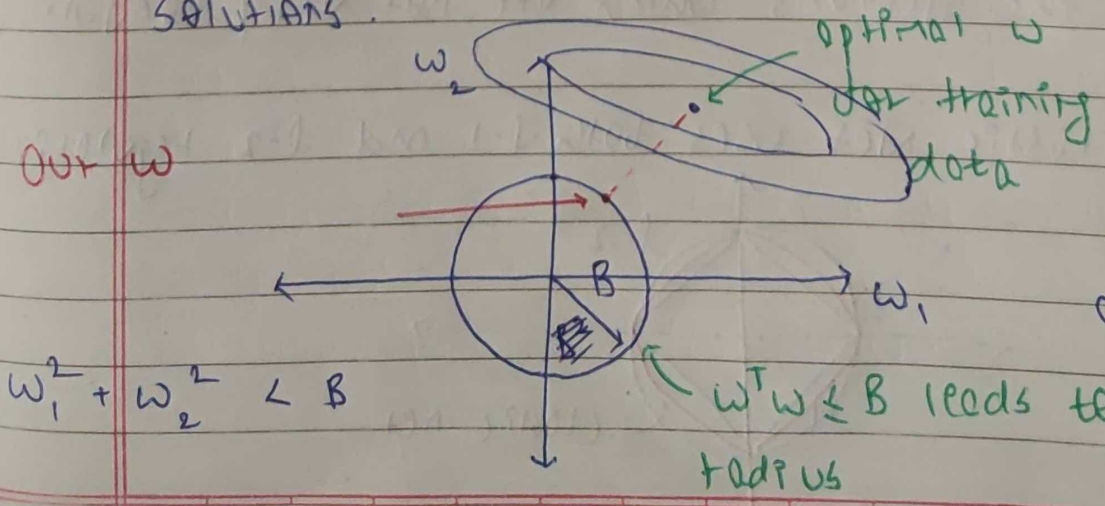 solutions.
w₂
optimal w
for training
data
our w
B
w₁
w₁² + w₂² < B
wᵀw ≤ B leads to
radius